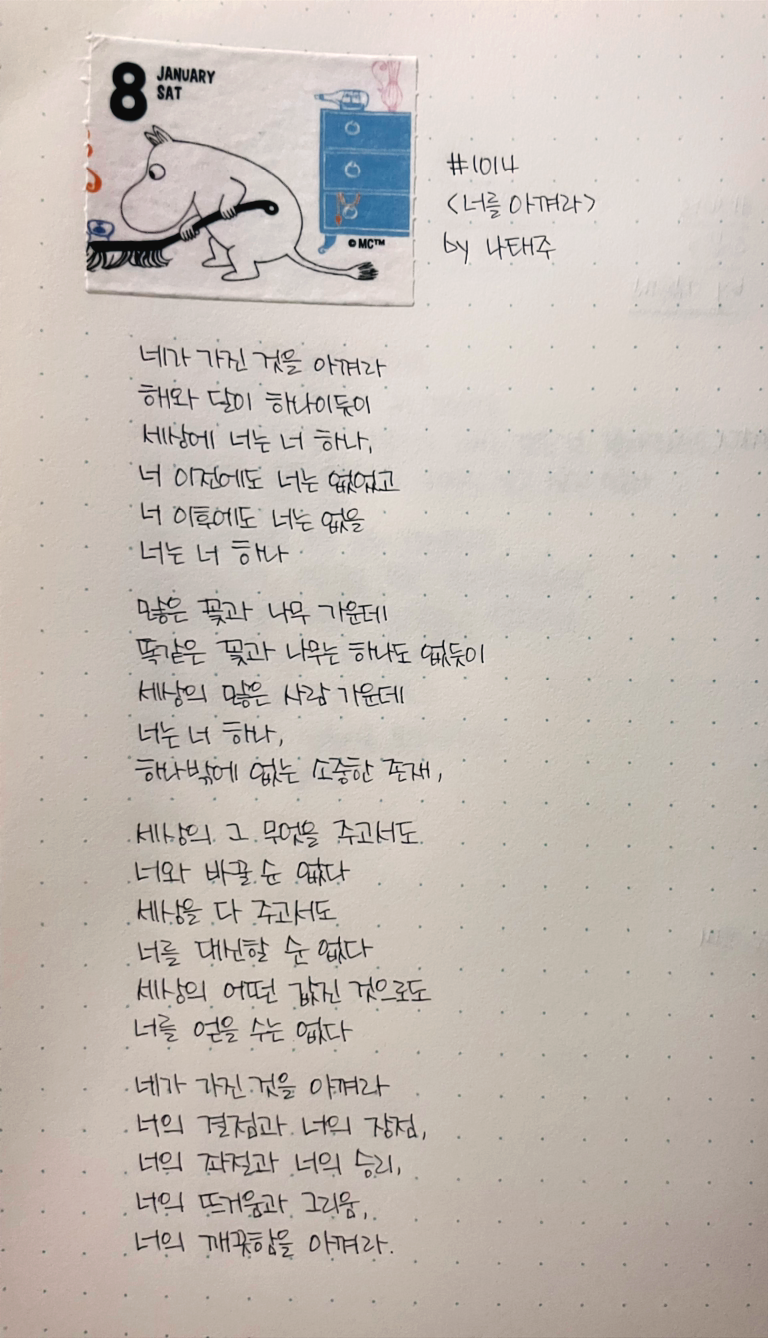 8 JANUARY
SAT
©MC™
#1014
<너를 아껴라>
by 나태주
네가 가진 것을 아껴라
해와 달이 하나이듯이
세상에 너는 너 하나,
너 이전에도 너는 없었고
너 이후에도 너는 없을
너는 너 하나
많은 꽃과 나무 가운데
똑같은 꽃과 나무는 하나도 없듯이
세상의 많은 사람 가운데
너는 너 하나,
하나밖에 없는 소중한 존재,
세상의 그 무엇을 주고서도
너와 바꿀 순 없다
세상을 다 주고서도
너를 대신할 순 없다
세상의 어떤 값진 것으로도
너를 얻을 수는 없다
네가 가진 것을 아껴라
너의 결점과 너의 장점,
너의 좌절과 너의 승리,
너의 뜨거움과 그리움,
너의 깨끗함을 아껴라.